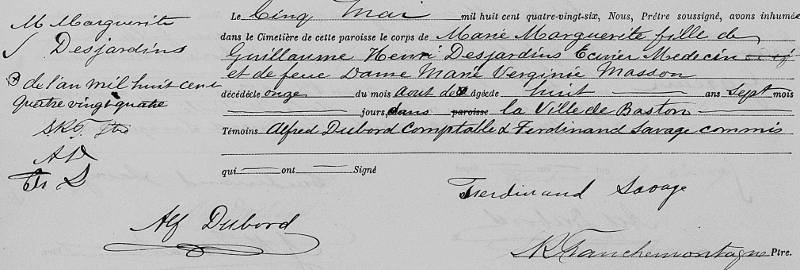 M Marguerite
Desjardins
de l'an mil huit cent
quatre vingt quatre
A D
F S
Le Cinq Mai mil huit cent quatre-vingt-six, Nous, Prêtre soussigné, avons inhumé
dans le Cimetière de cette paroisse le corps de Marie Marguerite fille de
Guillaume Henri Desjardins Ecuier Medecin
et de feue Dame Marie Verginie Masson
décédé le onze du mois Aout de âgé de huit ans Sept mois
jours, dans paroisse la Ville de Baston
Témoins Alfred Dubord Comptable & Ferdinand Savage commis
qui ont Signé
Ferdinand Savage
Alf Dubord
Franchemontagne Ptre.